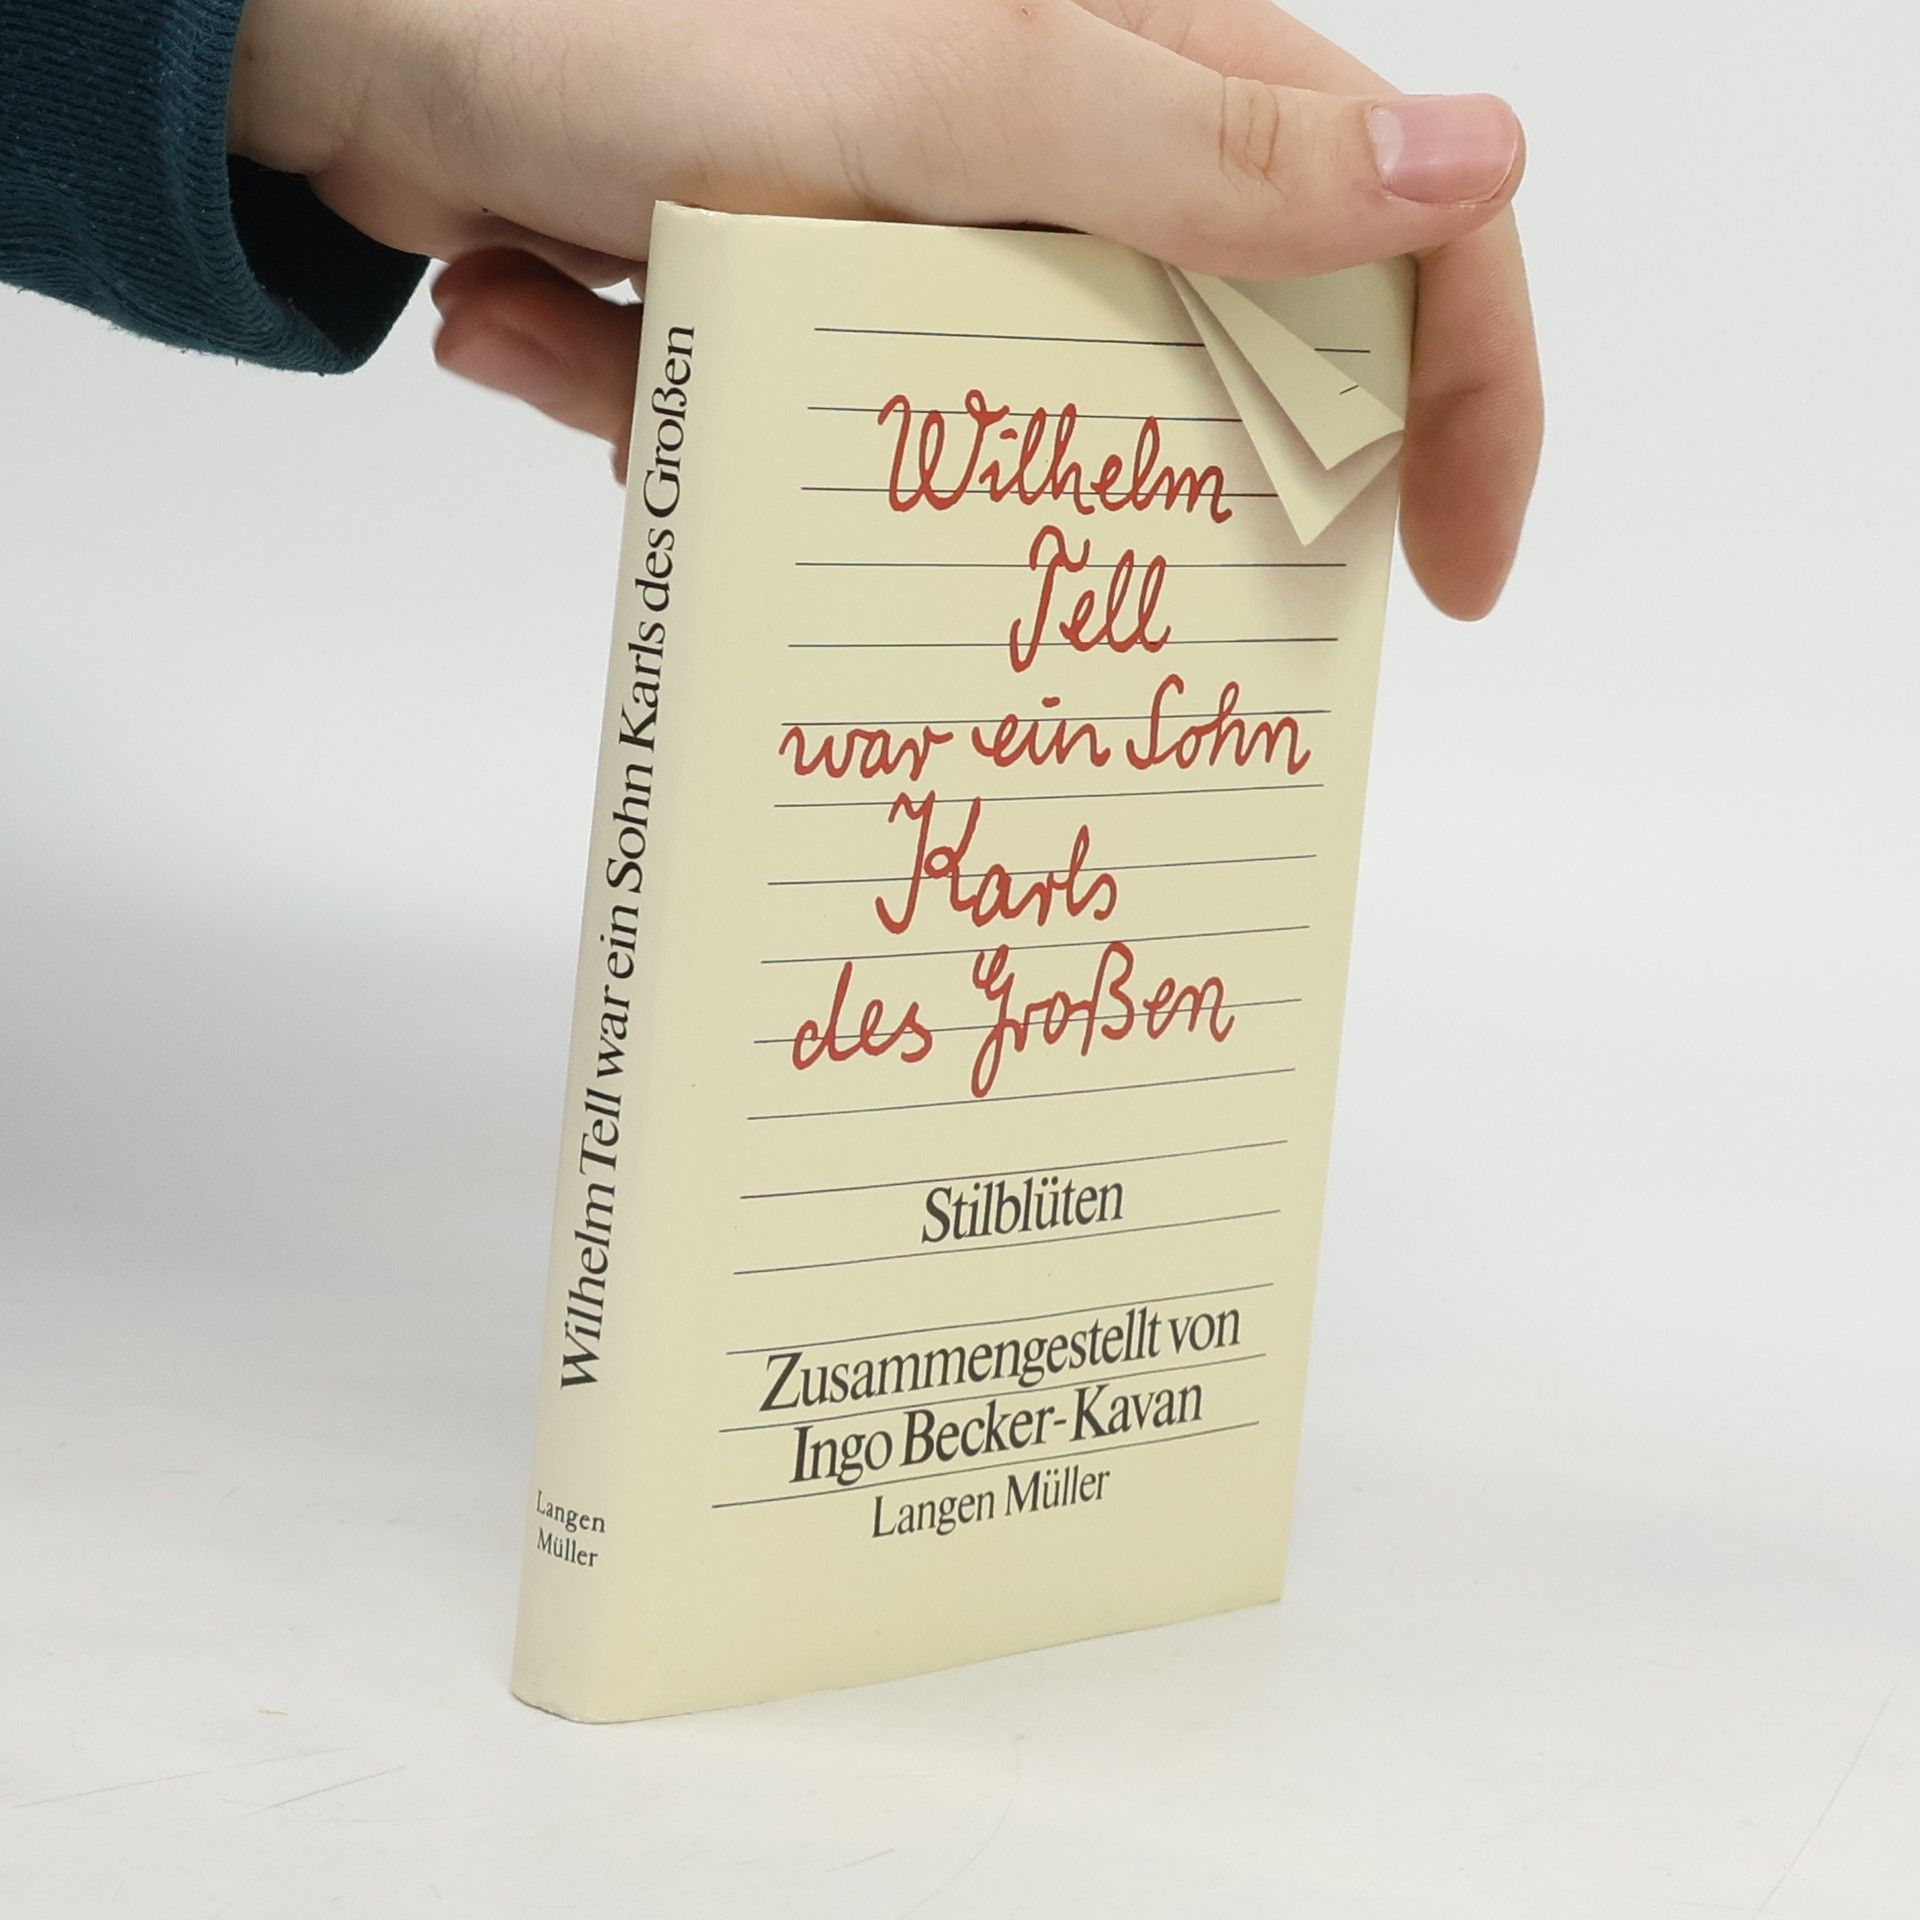 Wilhelm Tell war ein Sohn Karls des Großen
Langen
Müller
Wilhelm
Tell
war ein Sohn
Karls
des Großen
Stilblüten
Zusammengestellt von
Ingo Becker-Kavan
Langen Müller